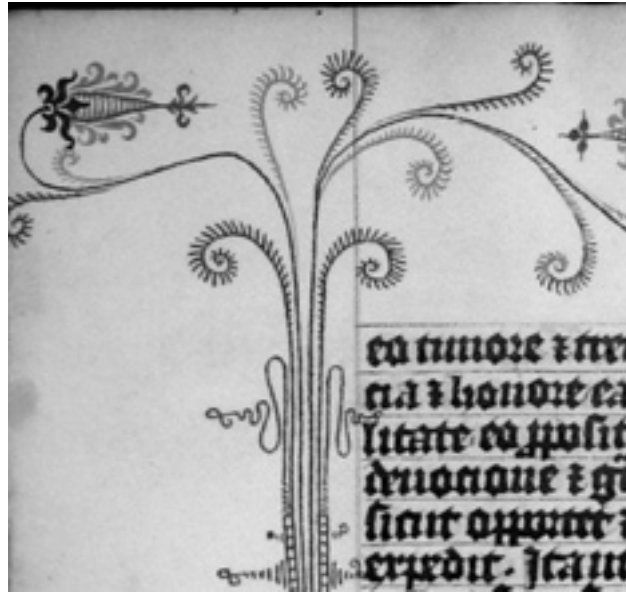 eo timore ⁊ tre
cia ⁊ honore ea
litate eo ꝓposit
deuocione ⁊ gͣ
sicut opportet
expedit. Ita ut